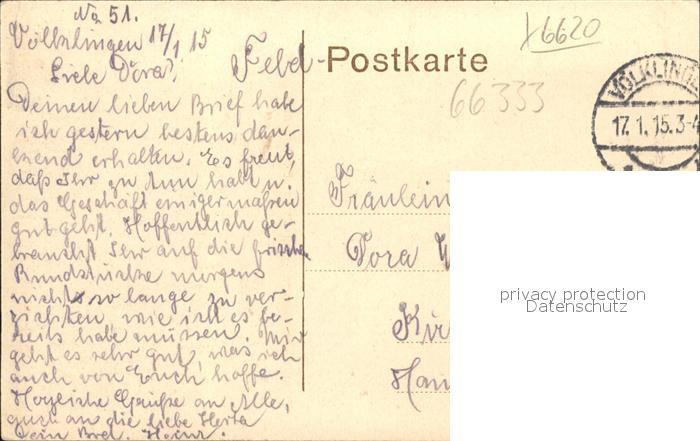 No 51.
Völklingen 17/1 15
Liebe Dora!
Feld-Postkarte
X6620
66333
VÖLKLINGE
17.1.15.3-4
Deinen lieben Brief habe
ich gestern bestens dan-
kend erhalten. Es freut,
daß Ihr zu tun habt u.
das Geschäft einigermaßen
gut geht. Hoffentlich ge-
braucht Ihr auf die frischen
Rundstücke morgens
nicht so lange zu ver-
zichten, wie ich es be-
reits habe müssen. Mir
geht es sehr gut, was ich
auch von Euch hoffe.
Herzliche Grüße an Alle,
auch an die liebe Herta
Dein Brd. Heinz.
Fräulein
Dora
privacy protection
Datenschutz